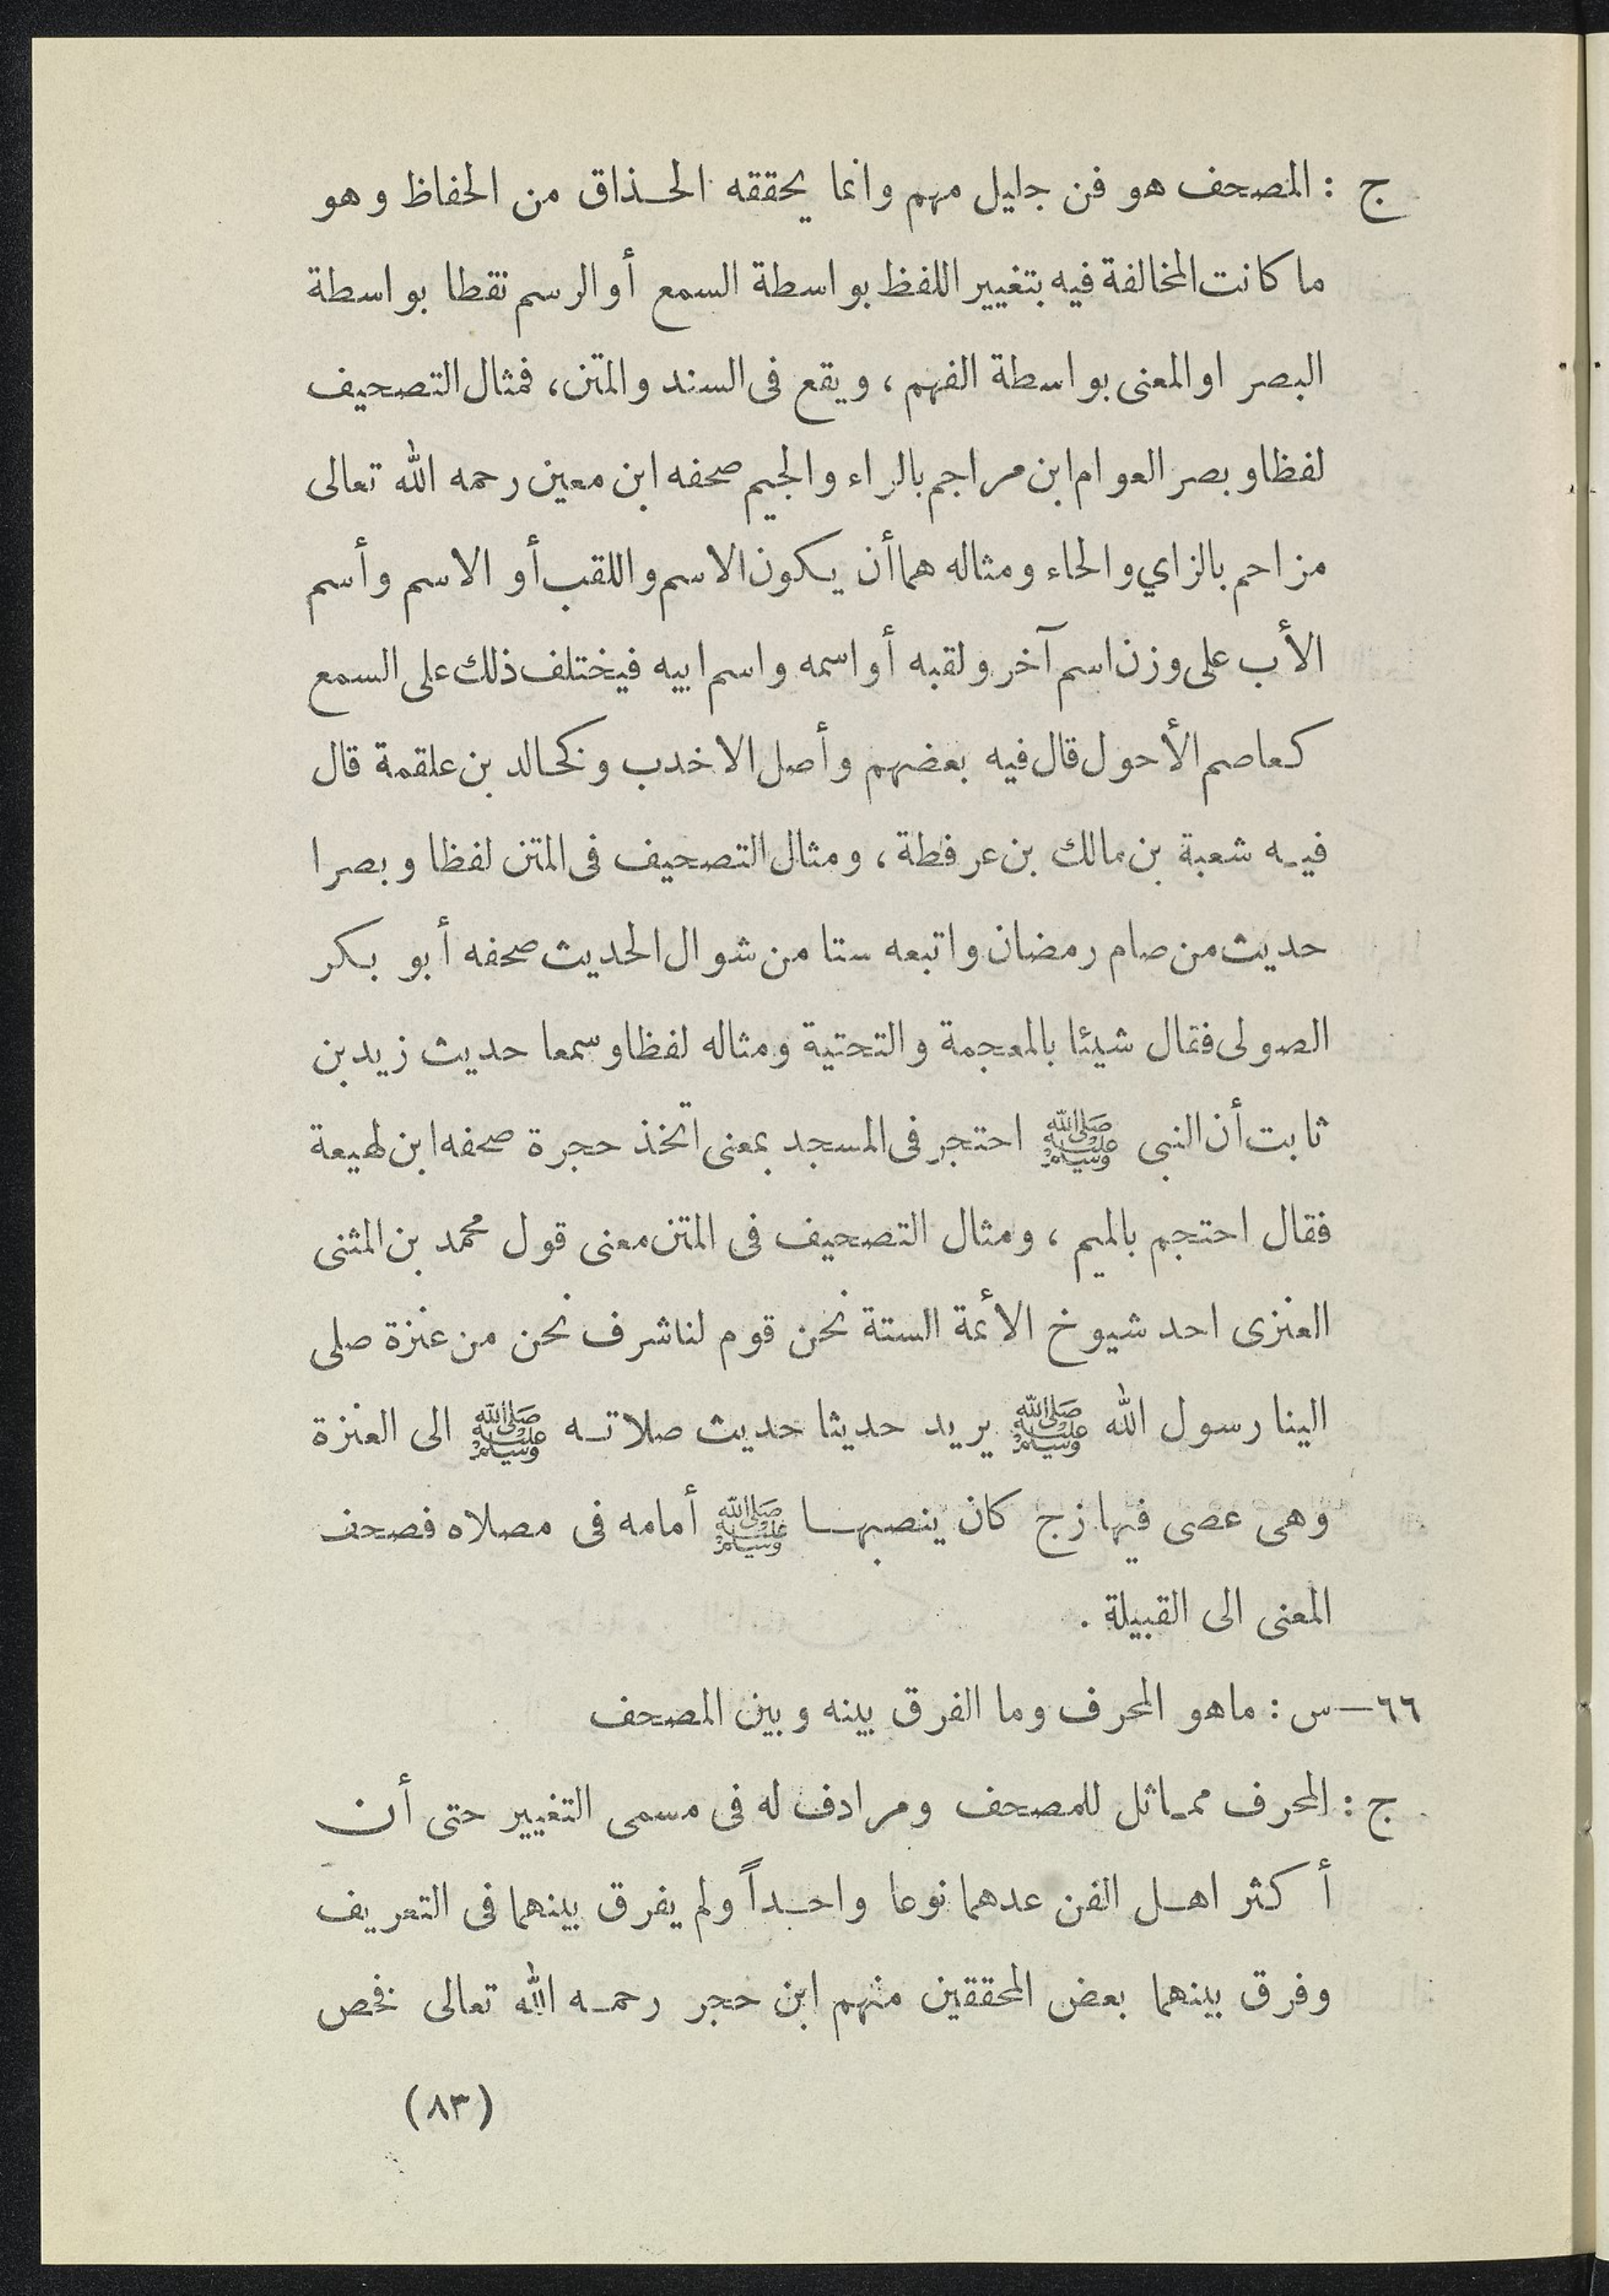 ج : المصحف هو فن جليل مهم وانما يحققه الحذاق من الحفاظ وهو
ما كانت المخالفة فيه بتغيير اللفظ بواسطة السمع أو الرسم نقطا بواسطة
البصر او المعنى بواسطة الفهم ، ويقع فى السند والمتن ، فمثال التصحيف
لفظا وبصر العوام ابن مراجم بالراء والجيم صحفه ابن معين رحمه الله تعالى
مزاحم بالزاي والحاء ومثاله هما أن يكون الاسم واللقب أو الاسم وأسم
الأب على وزن اسم آخر ولقبه أو اسمه واسم ابيه فيختلف ذلك على السمع
كعاصم الأحول قال فيه بعضهم وأصل الاخدب وكخالد بن علقمة قال
فيه شعبة بن مالك بن عرفطة ، ومثال التصحيف فى المتن لفظا وبصرا
حديث من صام رمضان واتبعه ستا من شوال الحديث صحفه أبو بكر
الصولى فقال شيئا بالمعجمة والتحتية ومثاله لفظا وسمعا حديث زيد بن
ثابت أن النبى ﷺ احتجر فى المسجد بمعنى اتخذ حجرة صحفه ابن لهيعة
فقال احتجم بالميم ، ومثال التصحيف فى المتن معنى قول محمد بن المثنى
العنزى احد شيوخ الأئمة الستة نحن قوم لنا شرف نحن من عنزة صلى
الينا رسول الله ﷺ يريد حديثا حديث صلاته ﷺ الى العنزة
وهى عصى فيها زج كان ينصبها ﷺ أمامه فى مصلاه فصحف
المعنى الى القبيلة .
٦٦ — س : ماهو المحرف وما الفرق بينه وبين المصحف
ج : المحرف مماثل للمصحف ومرادف له فى مسمى التغيير حتى أن
أكثر اهل الفن عدهما نوعا واحداً ولم يفرق بينهما فى التعريف
وفرق بينهما بعض المحققين منهم ابن حجر رحمه الله تعالى فخص
(٨٣)